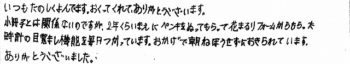 いつもたのしくよんでます。おくってくれて、ありがとうございます。
小冊子とは関係ないのですが、2年くらいまえにペンキをぬってもらって花まるリフォームが外うちら。た
時計の目覚まし機能を毎日つかっています。おかげで朝ねぼうせずにおきられています。
ありがとうございました。